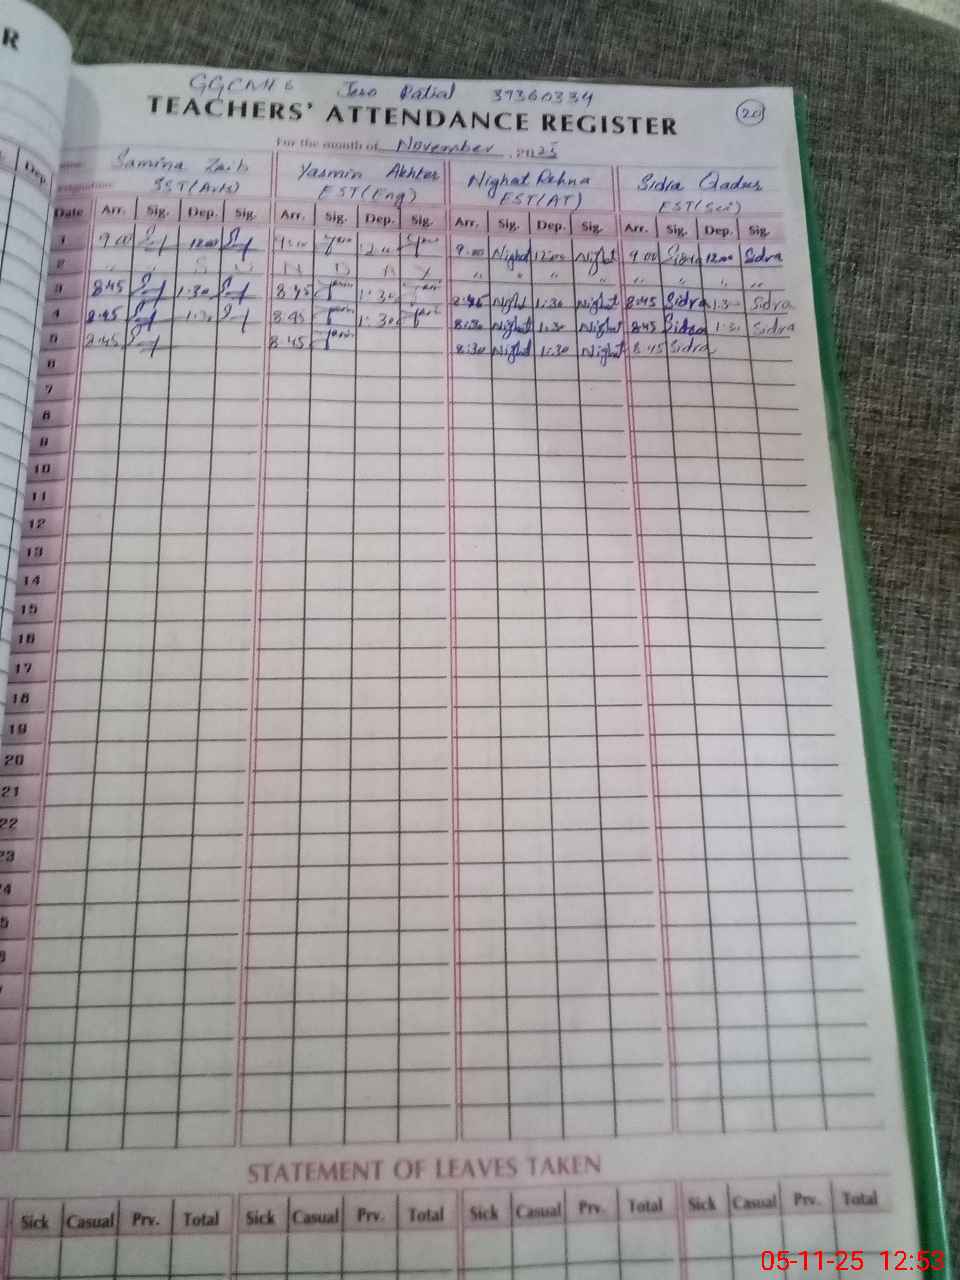 R
GGCMHS 37360334
TEACHERS' ATTENDANCE REGISTER
20
For the month of November 2025
Dep.
Samina Zaib Yasmin Akhter Nighat Rehna Sidra Qadus
SST(Arts) EST(Eng) EST(AT) EST(Sci)
Date Arr. Sig. Dep. Sig. Arr. Sig. Dep. Sig. Arr. Sig. Dep. Sig. Arr. Sig. Dep. Sig.
1 9.00 12.00 9.00 Nighat 12:00 Nighat 9.00 Sidra 12.00 Sidra
2 S U N D A Y
3 8:45 1:30 8:45 1:30 Nighat 1:30 Nighat 8:45 Sidra 1:30 Sidra
4 8:45 1:30 8:45 1:30 8:30 Nighat 1:30 Nighat 8:45 Sidra 1:30 Sidra
5 8:45 8:45 8:30 Nighat 1:30 Nighat 8:45 Sidra
6
7
8
9
10
11
12
13
14
15
16
17
18
19
20
21
22
23
4
5
STATEMENT OF LEAVES TAKEN
Sick Casual Prv. Total Sick Casual Prv. Total Sick Casual Prv. Total Sick Casual Prv. Total
05-11-25 12:53